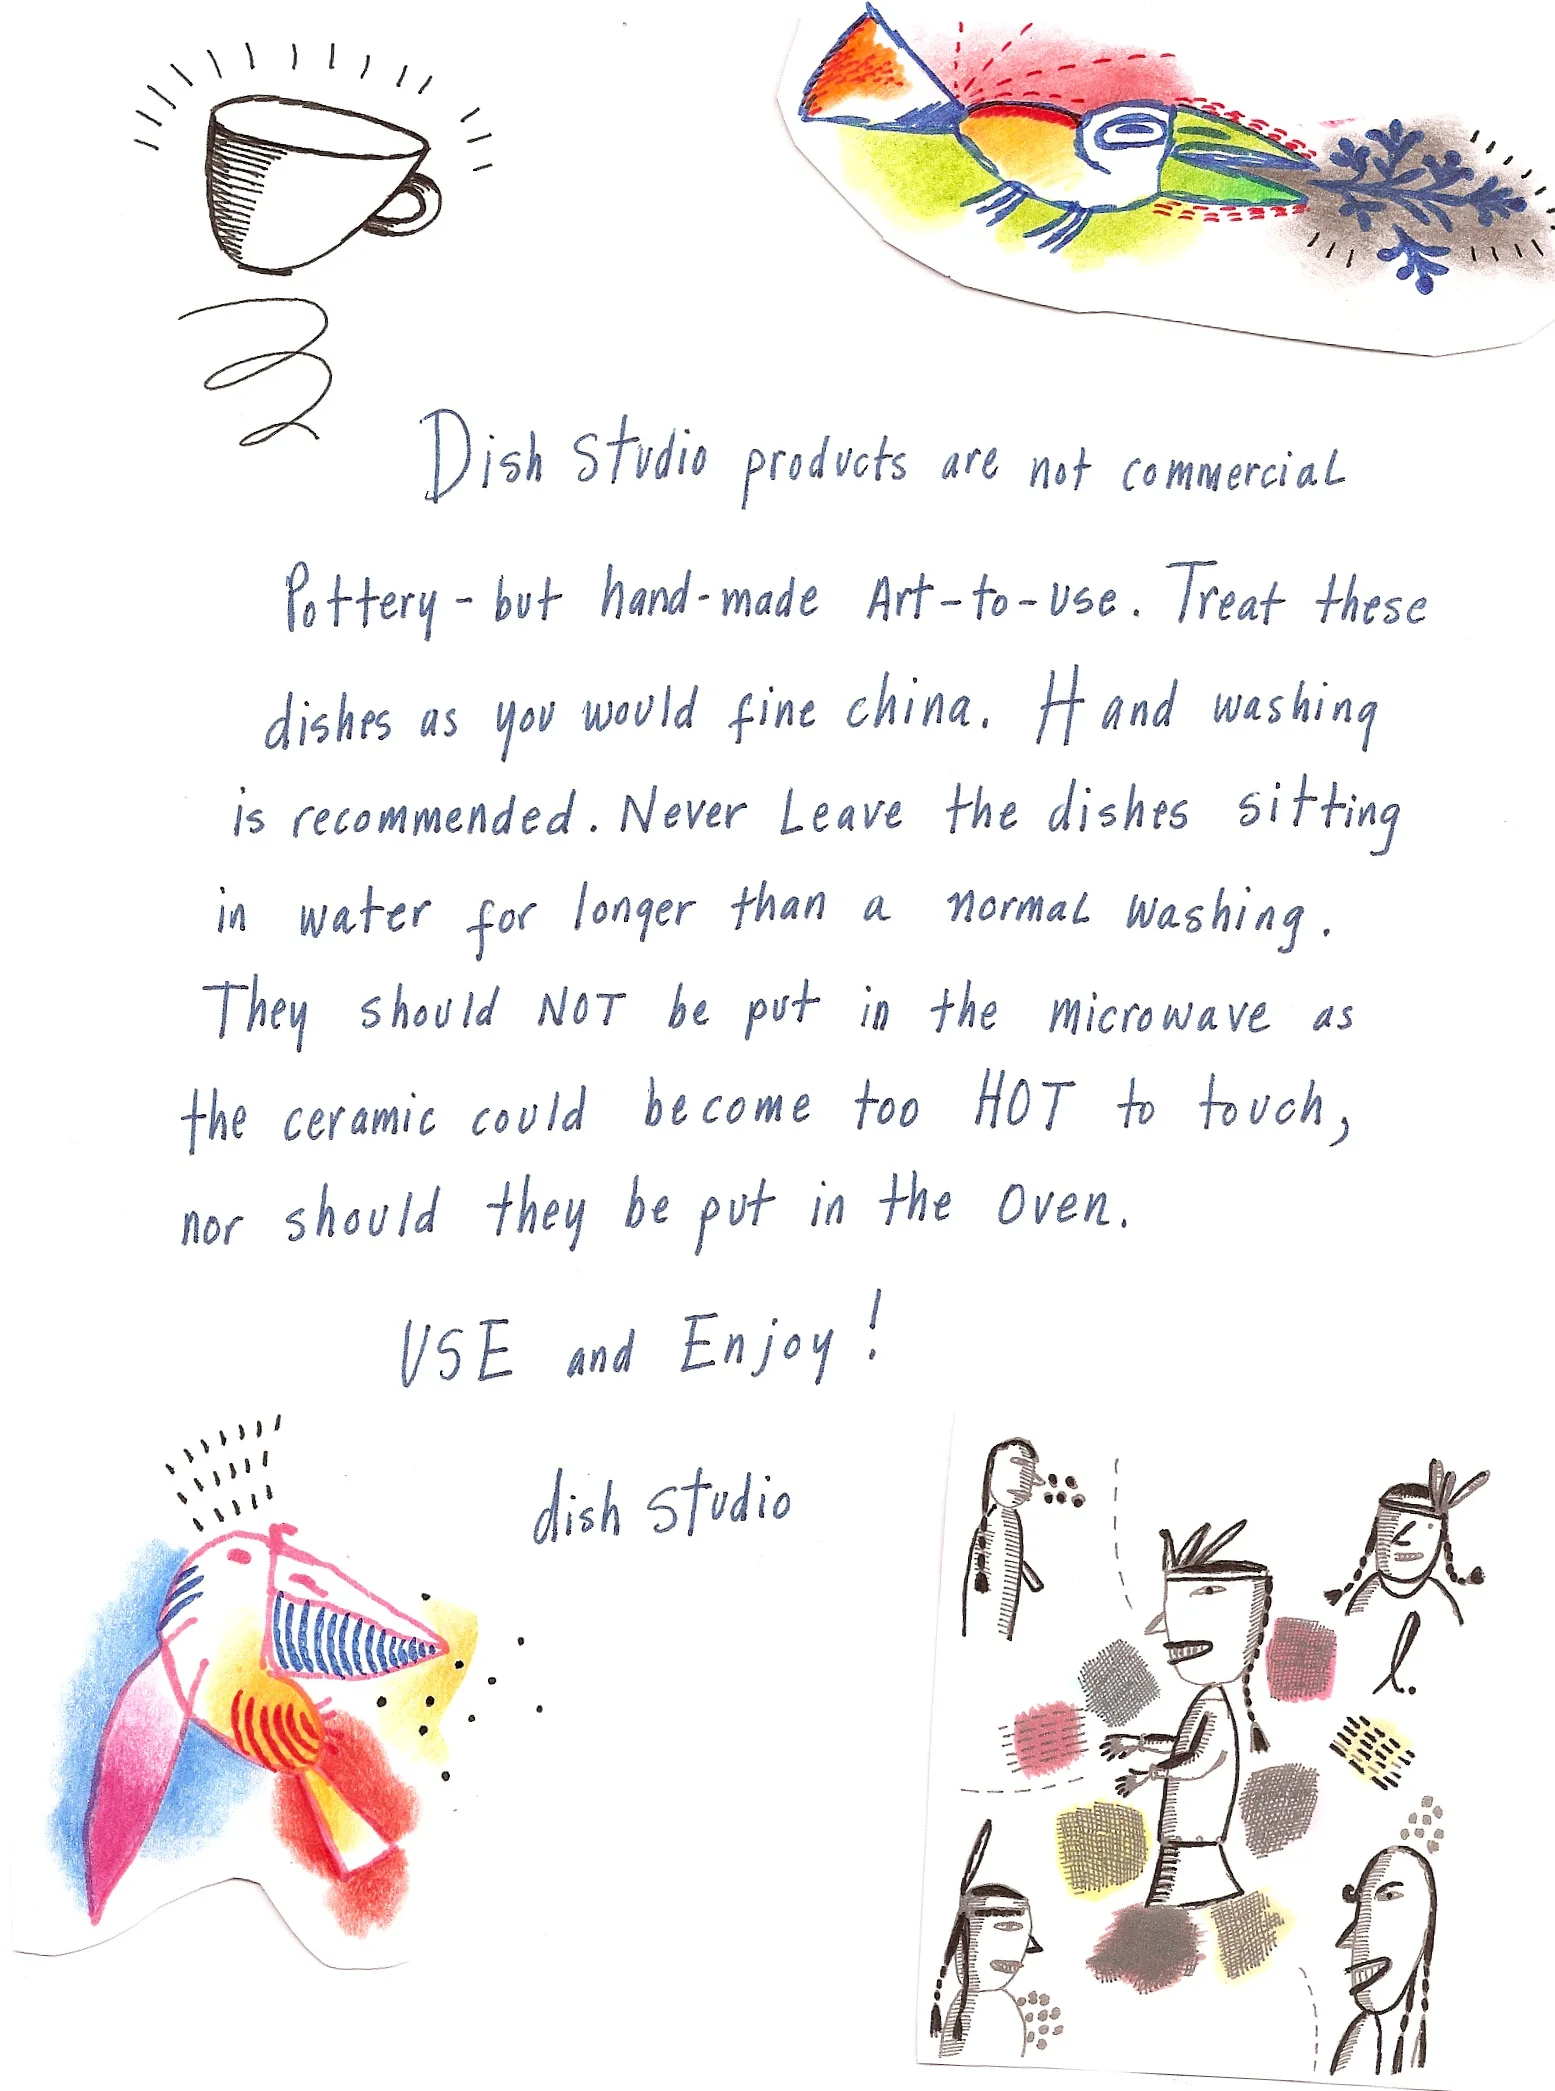 Dish Studio products are not commercial
Pottery - but hand-made Art-to-use. Treat these
dishes as you would fine china. Hand washing
is recommended. Never Leave the dishes sitting
in water for longer than a normal washing.
They should NOT be put in the microwave as
the ceramic could become too HOT to touch,
nor should they be put in the oven.
USE and Enjoy!
dish studio
l.